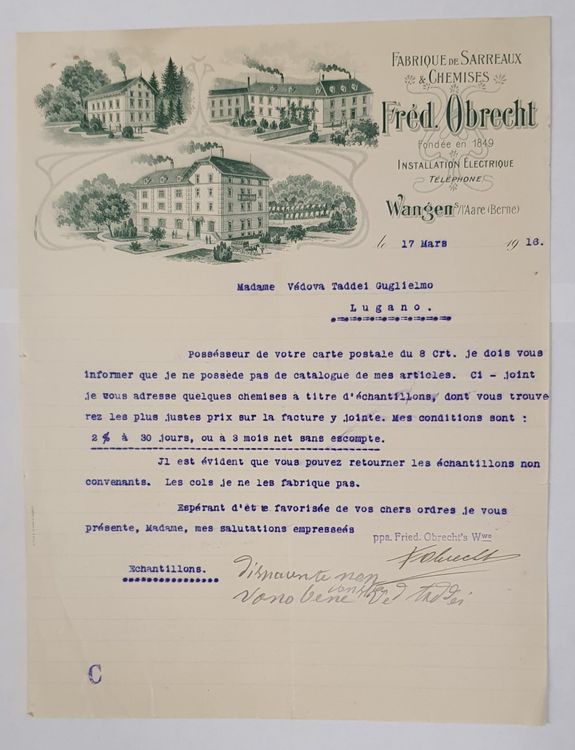 FABRIQUE DE SARREAUX
& CHEMISES
Fréd. Obrecht
Fondée en 1849
INSTALLATION ÉLECTRIQUE
TÉLÉPHONE
Wangen s/l'Aare (Berne)
le 17 Mars 1916.
Madame Védova Taddei Guglielmo
Lugano.
Possésseur de votre carte postale du 8 Crt. je dois vous
informer que je ne possède pas de catalogue de mes articles. Ci - joint
je vous adresse quelques chemises à titre d'échantillons, dont vous trouve
rez les plus justes prix sur la facture y jointe. Mes conditions sont :
2% à 30 jours, ou à 3 mois net sans escompte.
Jl est évident que vous pouvez retourner les échantillons non
convenants. Les cols je ne les fabrique pas.
Espérant d'être favorisée de vos chers ordres je vous
présente, Madame, mes salutations empresseés
ppa. Fried. Obrecht's Wwe
Obrecht
Echantillons.
non
vono bene Ved Taddei
C